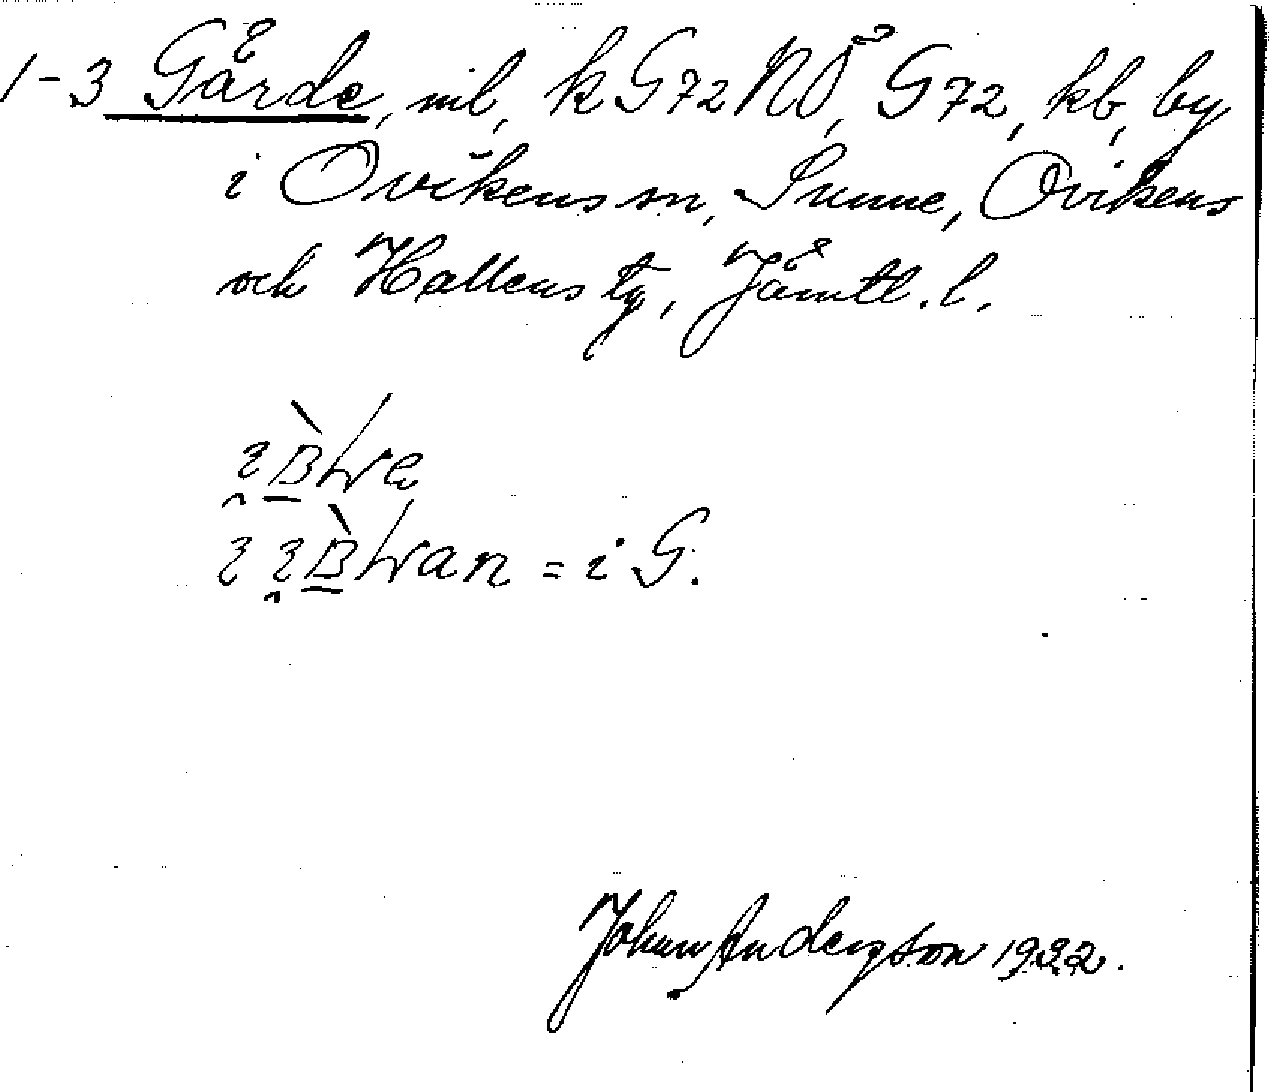 1-3 Gärde, mil, k G72NÖ, G72, kb, by
i Ovikens sn, Sunne, Ovikens
och Hallens tg, Jämtl. l.
= i G.
Johan Anderzson 1932.